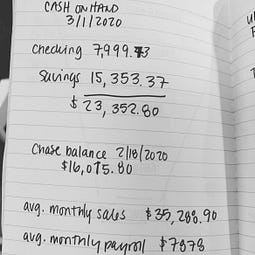 CASH ON HAND
3/1/2020
checking 7,999.43
Savings 15,353.37
$ 23,352.80
Chase balance 2/18/2020
$16,075.80
avg. monthly sales $35,288.90
avg. monthly payroll $7878